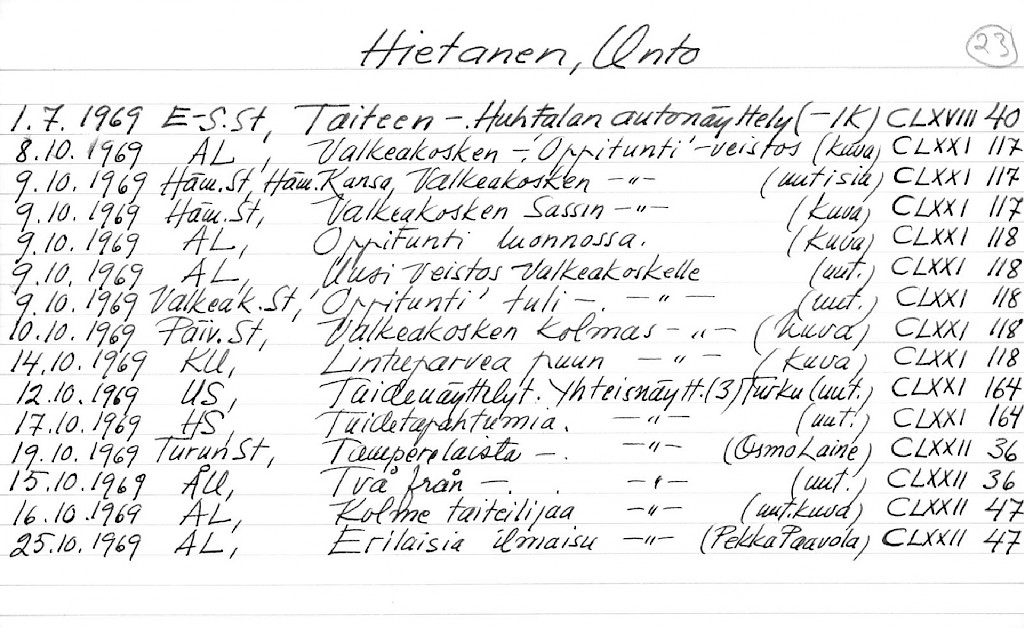 Hietanen, Unto
23
1.7.1969 E-S.St, Taiteen -. Huhtalan autonäyttely (-IK) CLXVIII 40
8.10.1969 AL, Valkeakosken -'Oppitunti'-veistos (kuva) CLXXI 117
9.10.1969 Häm.St, Häm.Kansa, Valkeakosken -"- (uutisia) CLXXI 117
9.10.1969 Häm.St, Valkeakosken Sassin -"- (kuva) CLXXI 117
9.10.1969 AL, Oppitunti luonnossa. (kuva) CLXXI 118
9.10.1969 AL, Uusi veistos Valkeakoskelle (uut.) CLXXI 118
9.10.1969 Valkeak.St, 'Oppitunti' tuli -. -"- (uut.) CLXXI 118
10.10.1969 Päiv.St, Valkeakosken kolmas -"- (kuva) CLXXI 118
14.10.1969 KU, Linteparvea puun -"- (kuva) CLXXI 118
12.10.1969 US, Taidenäyttelyt. Yhteisnäytt.(3) Turku (uut.) CLXXI 164
17.10.1969 HS, Taidetapahtumia. -"- (uut.) CLXXI 164
19.10.1969 Turun St, Tamperelaista -. -"- (Osmo Laine) CLXXII 36
15.10.1969 ÅU, Två från -. -"- (uut.) CLXXII 36
16.10.1969 AL, Kolme taiteilijaa -"- (uut.kuva) CLXXII 47
25.10.1969 AL, Erilaisia ilmaisu -"- (Pekka Paavola) CLXXII 47